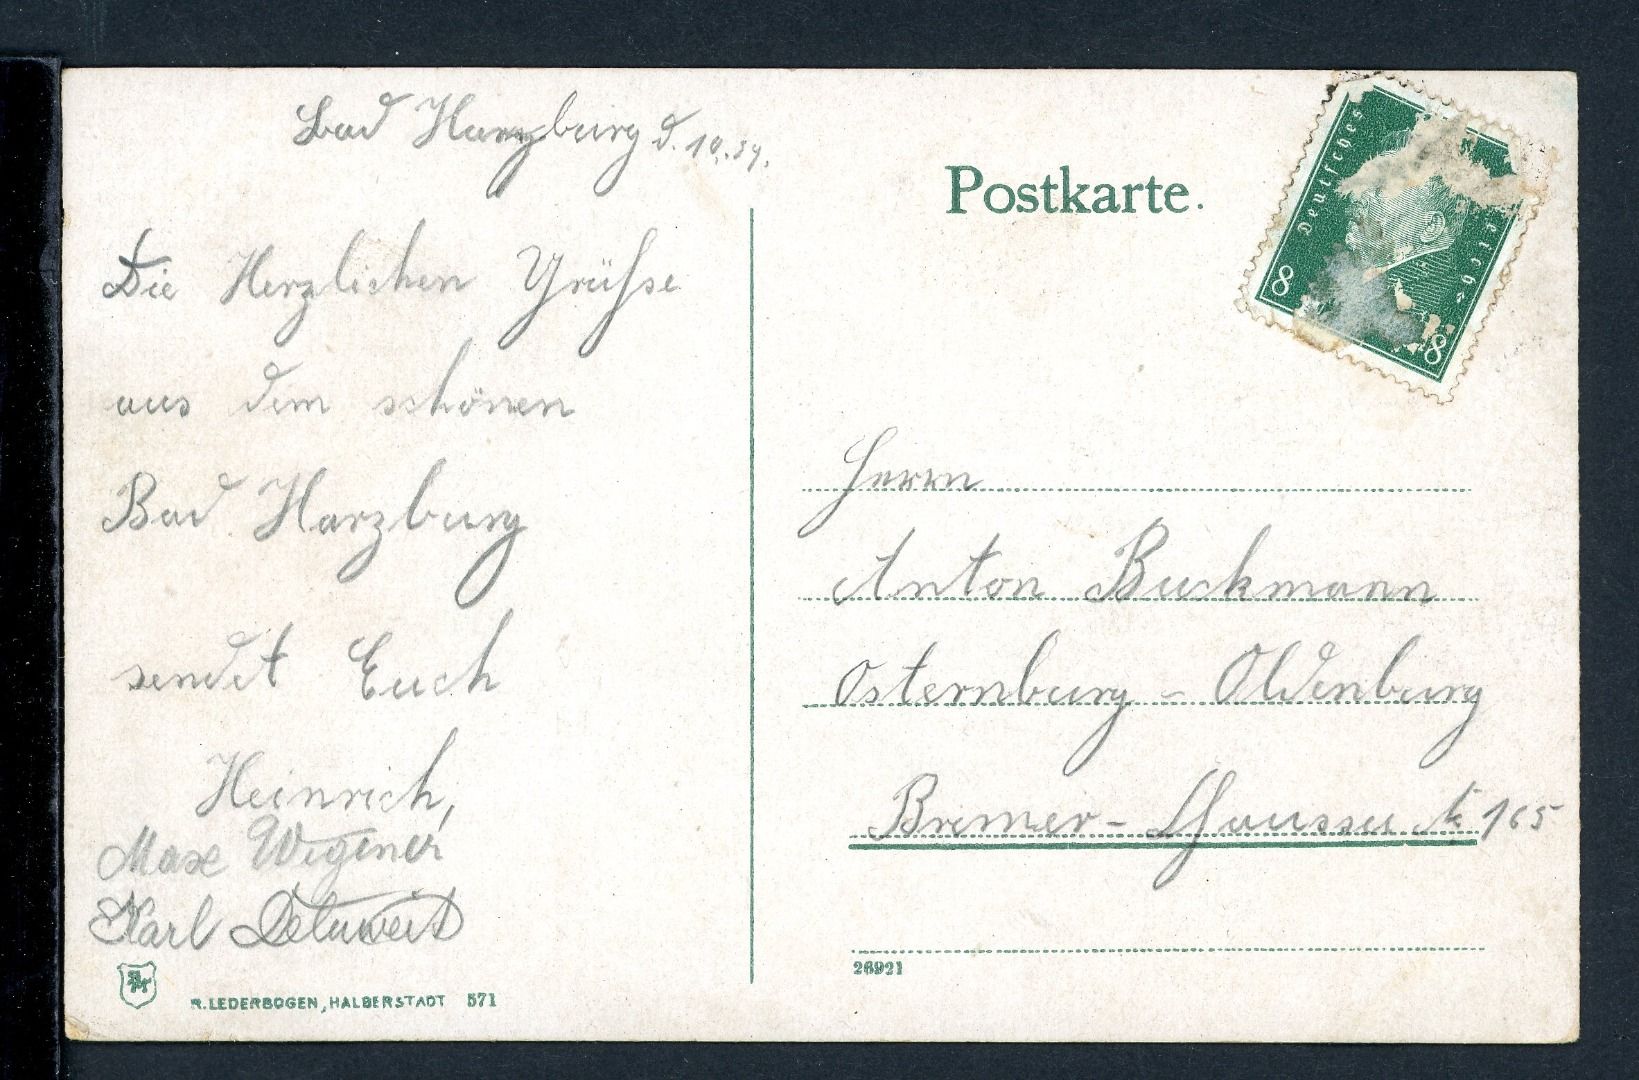 Bad Harzburg d.
Die Herzlichen Grüsse
aus dem schönen
Bad Harzburg
sendet Euch
Heinrich,
Max Wegener
Karl
R. LEDERBOGEN, HALBERSTADT 571
Postkarte.
Deutsches Reich
8 8
Herrn
Anton Buckmann
Osternburg - Oldenburg
Bremer - Chaussee № 165
26921